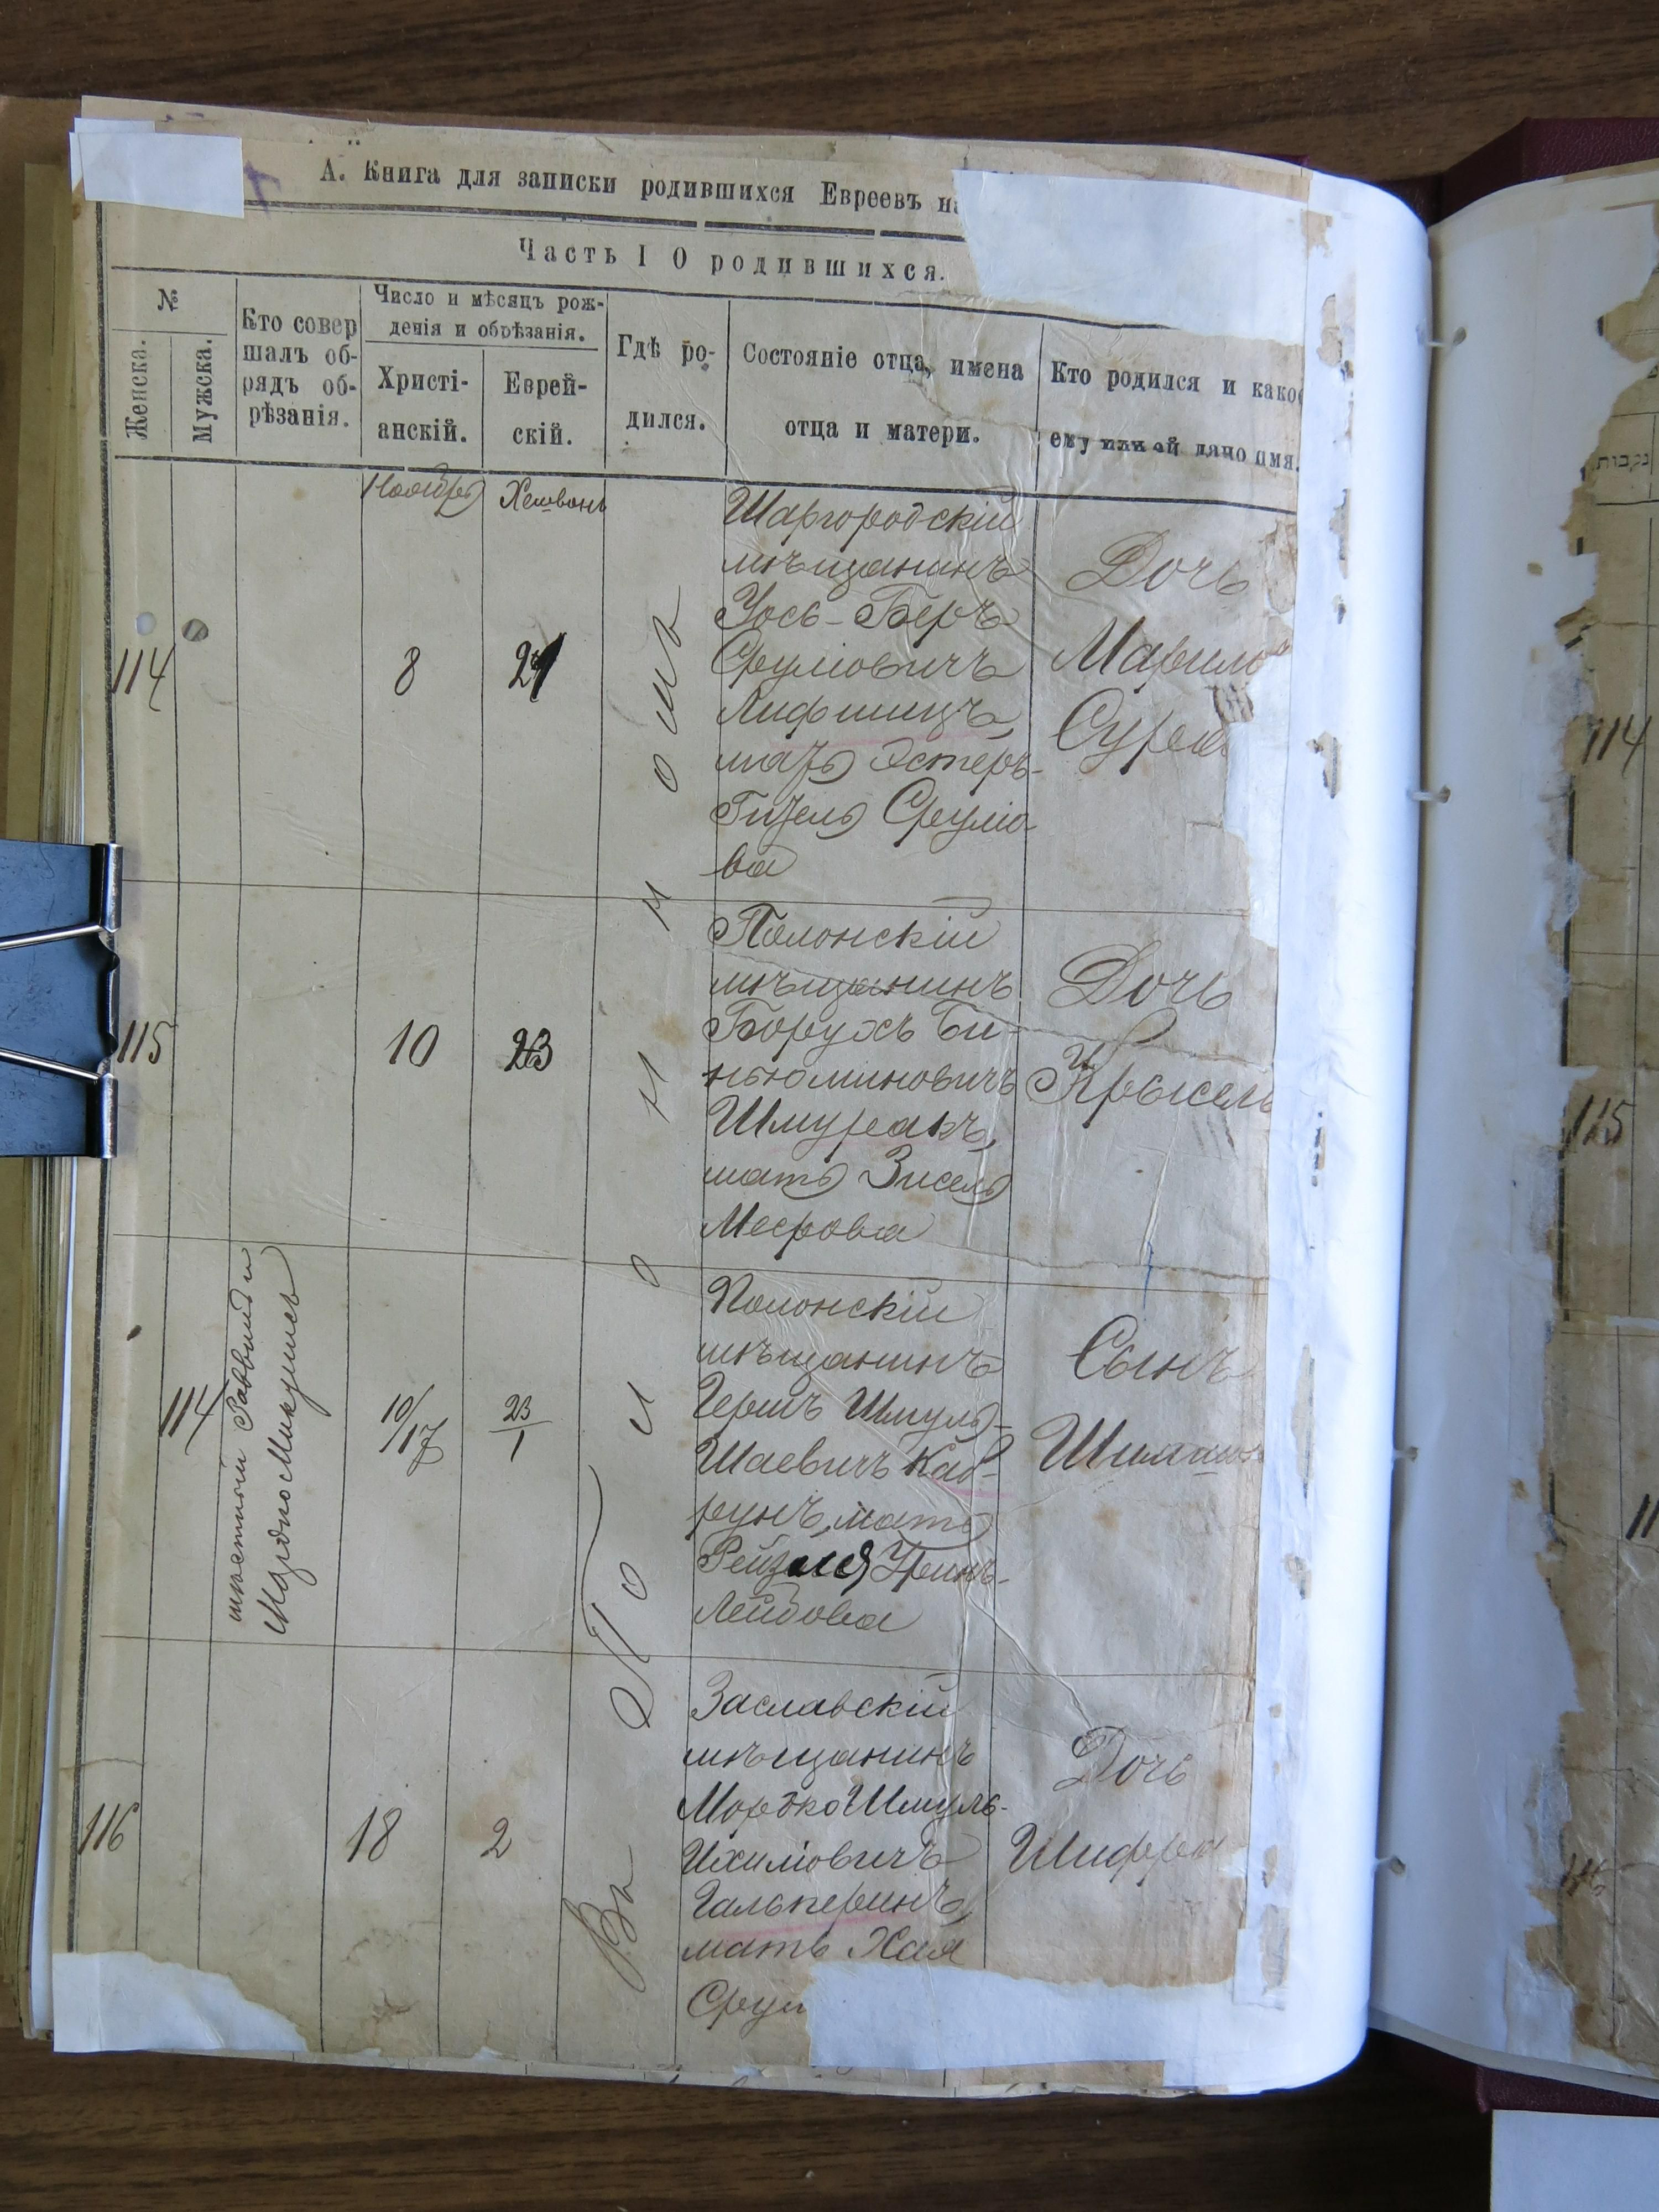 А. Книга для записки родившихся Евреевъ на
Часть I О родившихся.
№
Женска.
Мужска.
Кто совер
шалъ об-
рядъ об-
рѣзанія.
Число и мѣсяцъ рож-
денія и обрѣзанія.
Христі-
анскій.
Еврей-
скій.
Гдѣ ро-
дился.
Состояніе отца, имена
отца и матери.
Кто родился и какое
ему или ей дано имя.
Ноября
Хешвонъ
114
8
21
Шаргородскій
мѣщанинъ
Уось-Беръ
Сруліовичъ
Лифшицъ,
мать Эстеръ-
Гизель Сруліо-
ва
Дочь
Мариля
Сура
115
10
23
Полонскій
мѣщанинъ
Борухъ Би-
ньюминовичъ
Шмуракъ,
мать Зисель
Меерова
Дочь
Крысель
114
мѣстный Раввинъ и
Мордко Микулисъ
10/17
23/1
Полонскій
мѣщанинъ
Гершъ Шмуль-
Шаевичъ Каб-
рунъ, мать
Рейзля Гринъ-
Лейбова
Сынъ
116
18
2
Заславскій
мѣщанинъ
Мордко Шмуль-
Ихиліовичъ
Гальперинъ,
мать Хая
Срул
Дочь
Шифра
Въ Полонномъ
נקבות
114
115
11
116